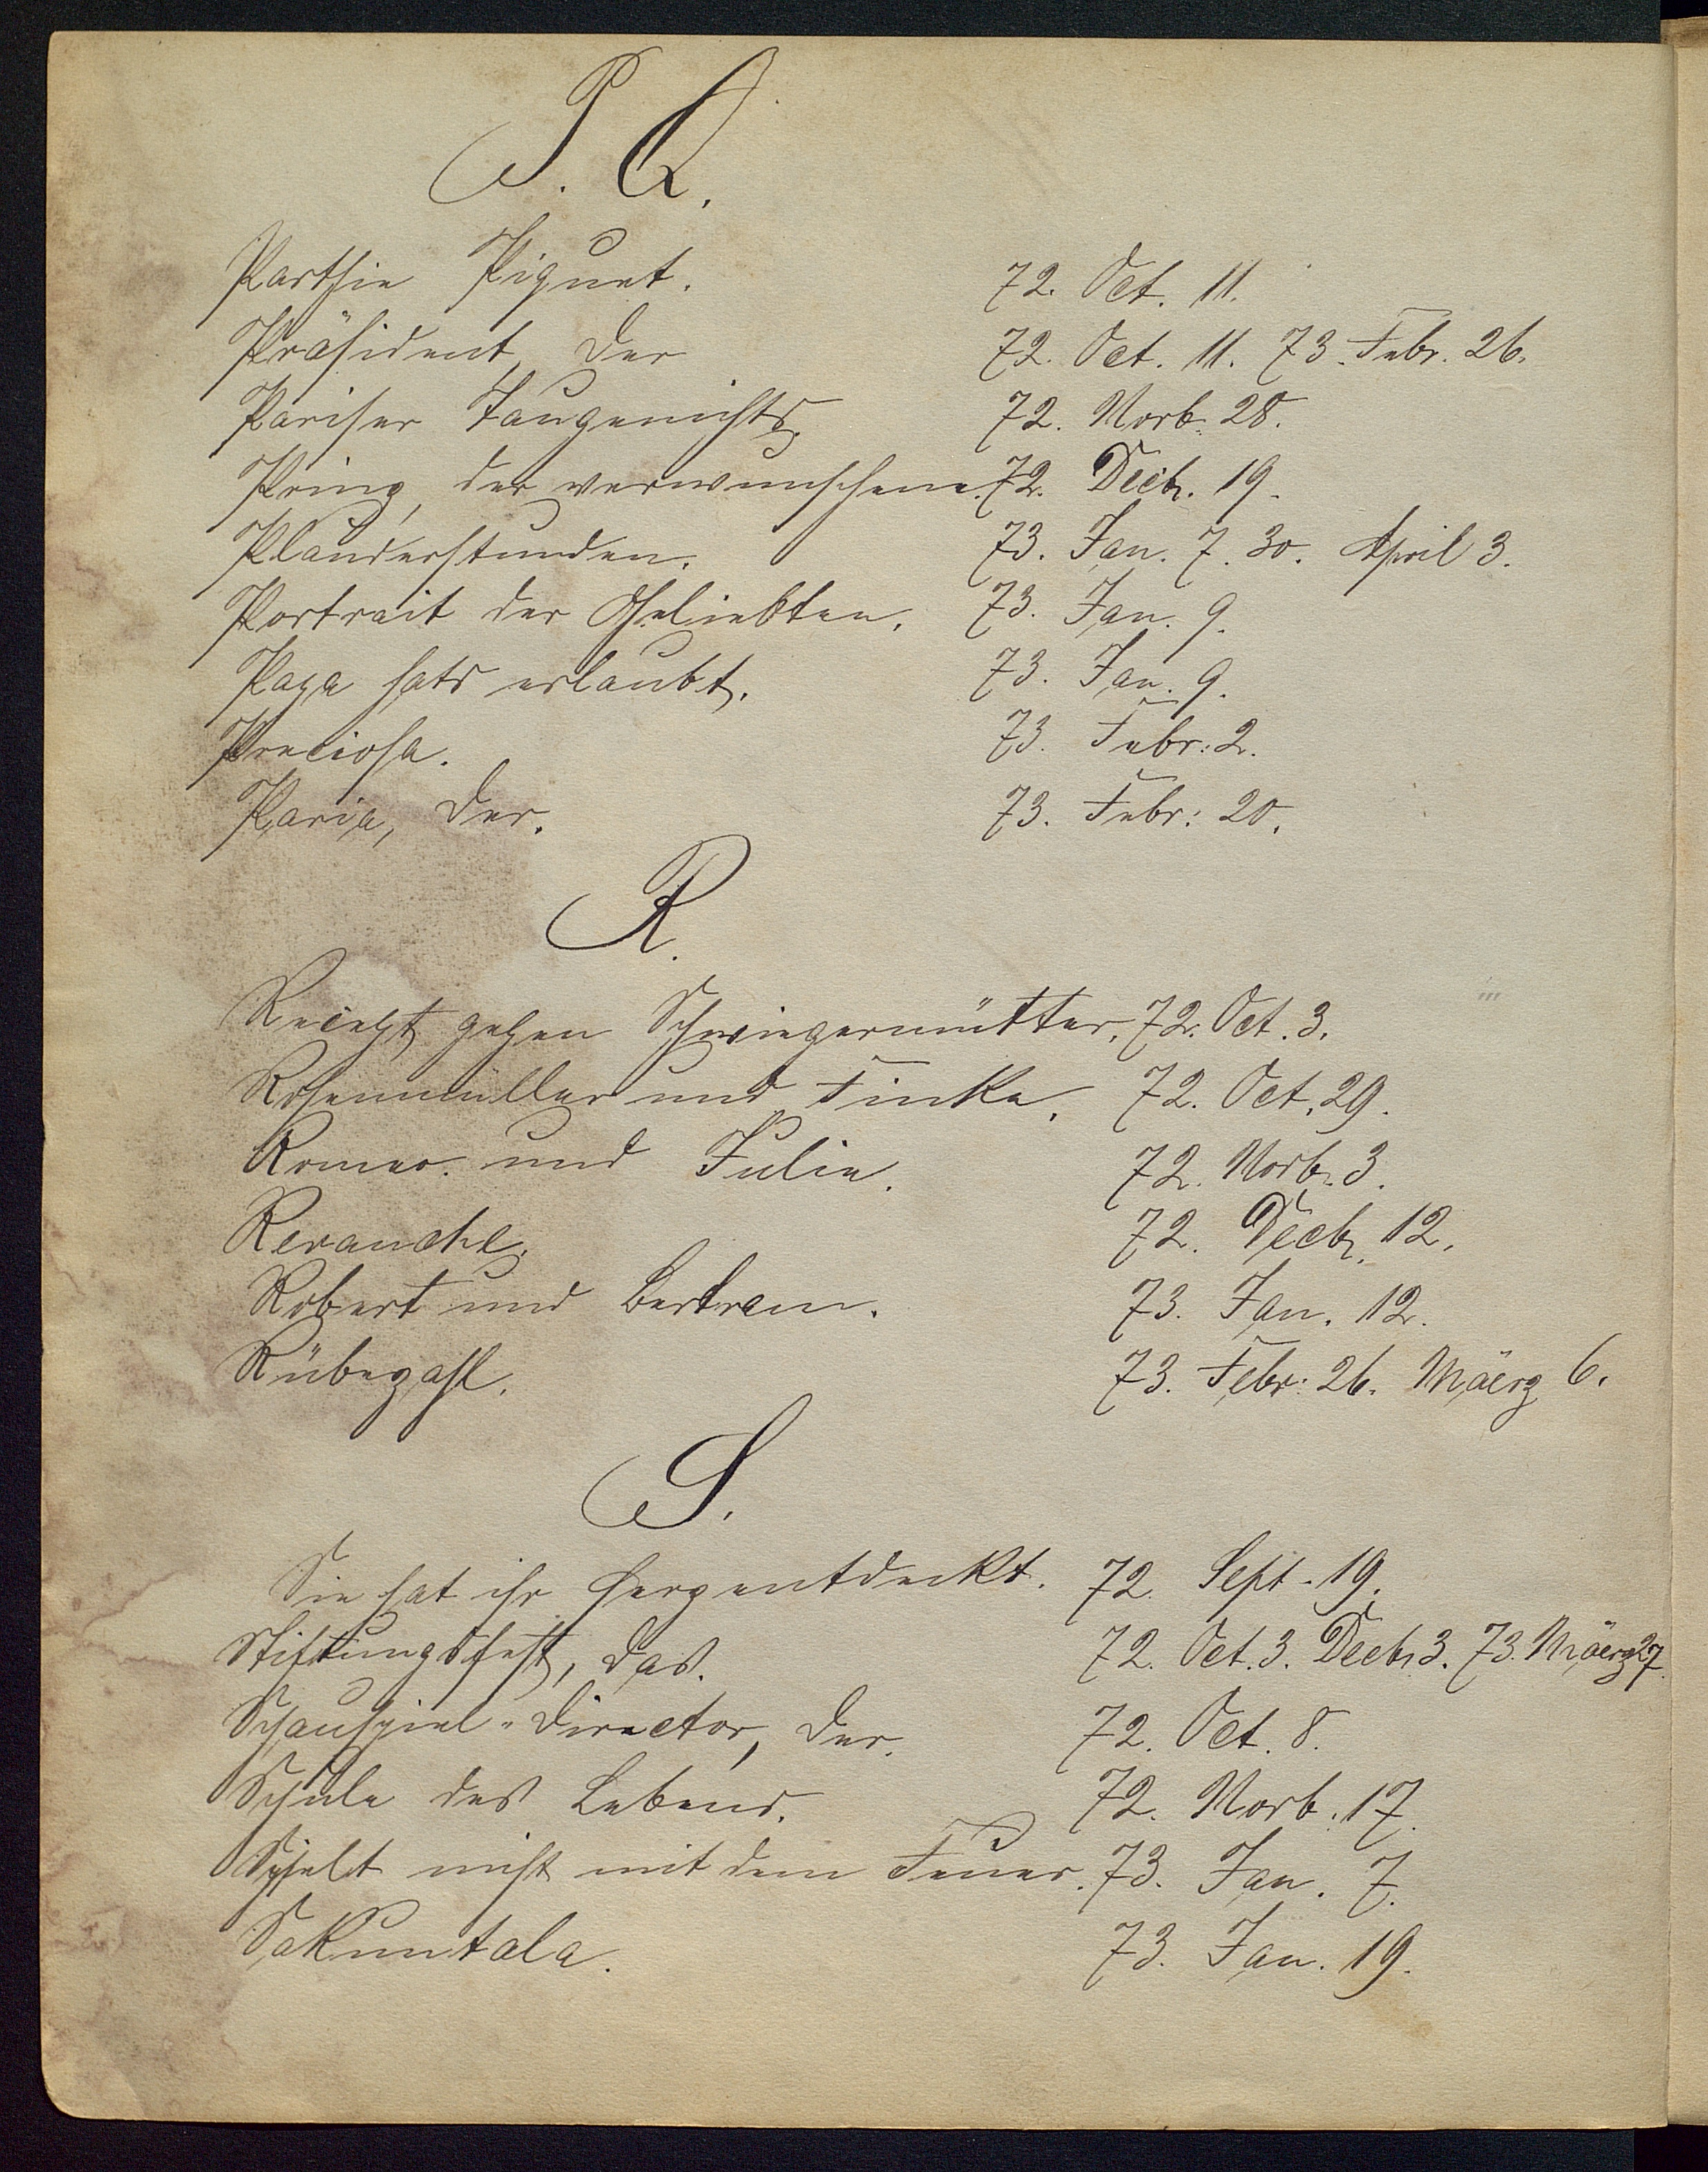 P. Q.
Parthie Piquet. 72. Oct. 11.
Präsident, der 72. Oct. 11. 73. Febr. 26.
Pariser Taugenichts. 72. Novb. 28.
Prinz, der verwunschene. 72. Decb. 19.
Plauderstunden. 73. Jan. 7. 30. April 3.
Portrait der Geliebten. 73. Jan. 9.
Papa hats erlaubt. 73. Jan. 9.
Preciosa. 73. Febr: 2.
Paria, der. 73. Febr: 20.
R.
Recept gegen Schwiegermütter. 72. Oct. 3.
Rosenmüller und Finke. 72. Oct. 29.
Romeo und Julie. 72. Novb. 3.
Revanche. 72. Decb. 12.
Robert und Bertram. 73. Jan. 12.
Rübezahl. 73. Febr: 26. März 6.
S.
Sie hat ihr Herz entdeckt. 72. Sept. 19.
Stiftungsfest, das. 72. Oct. 3. Decb. 3. 73. März 27.
Schauspiel-Director, der. 72. Oct. 8.
Schule des Lebens. 72. Novb. 17.
Spielt nicht mit dem Feuer. 73. Jan. 7.
Sakuntala. 73. Jan. 19.